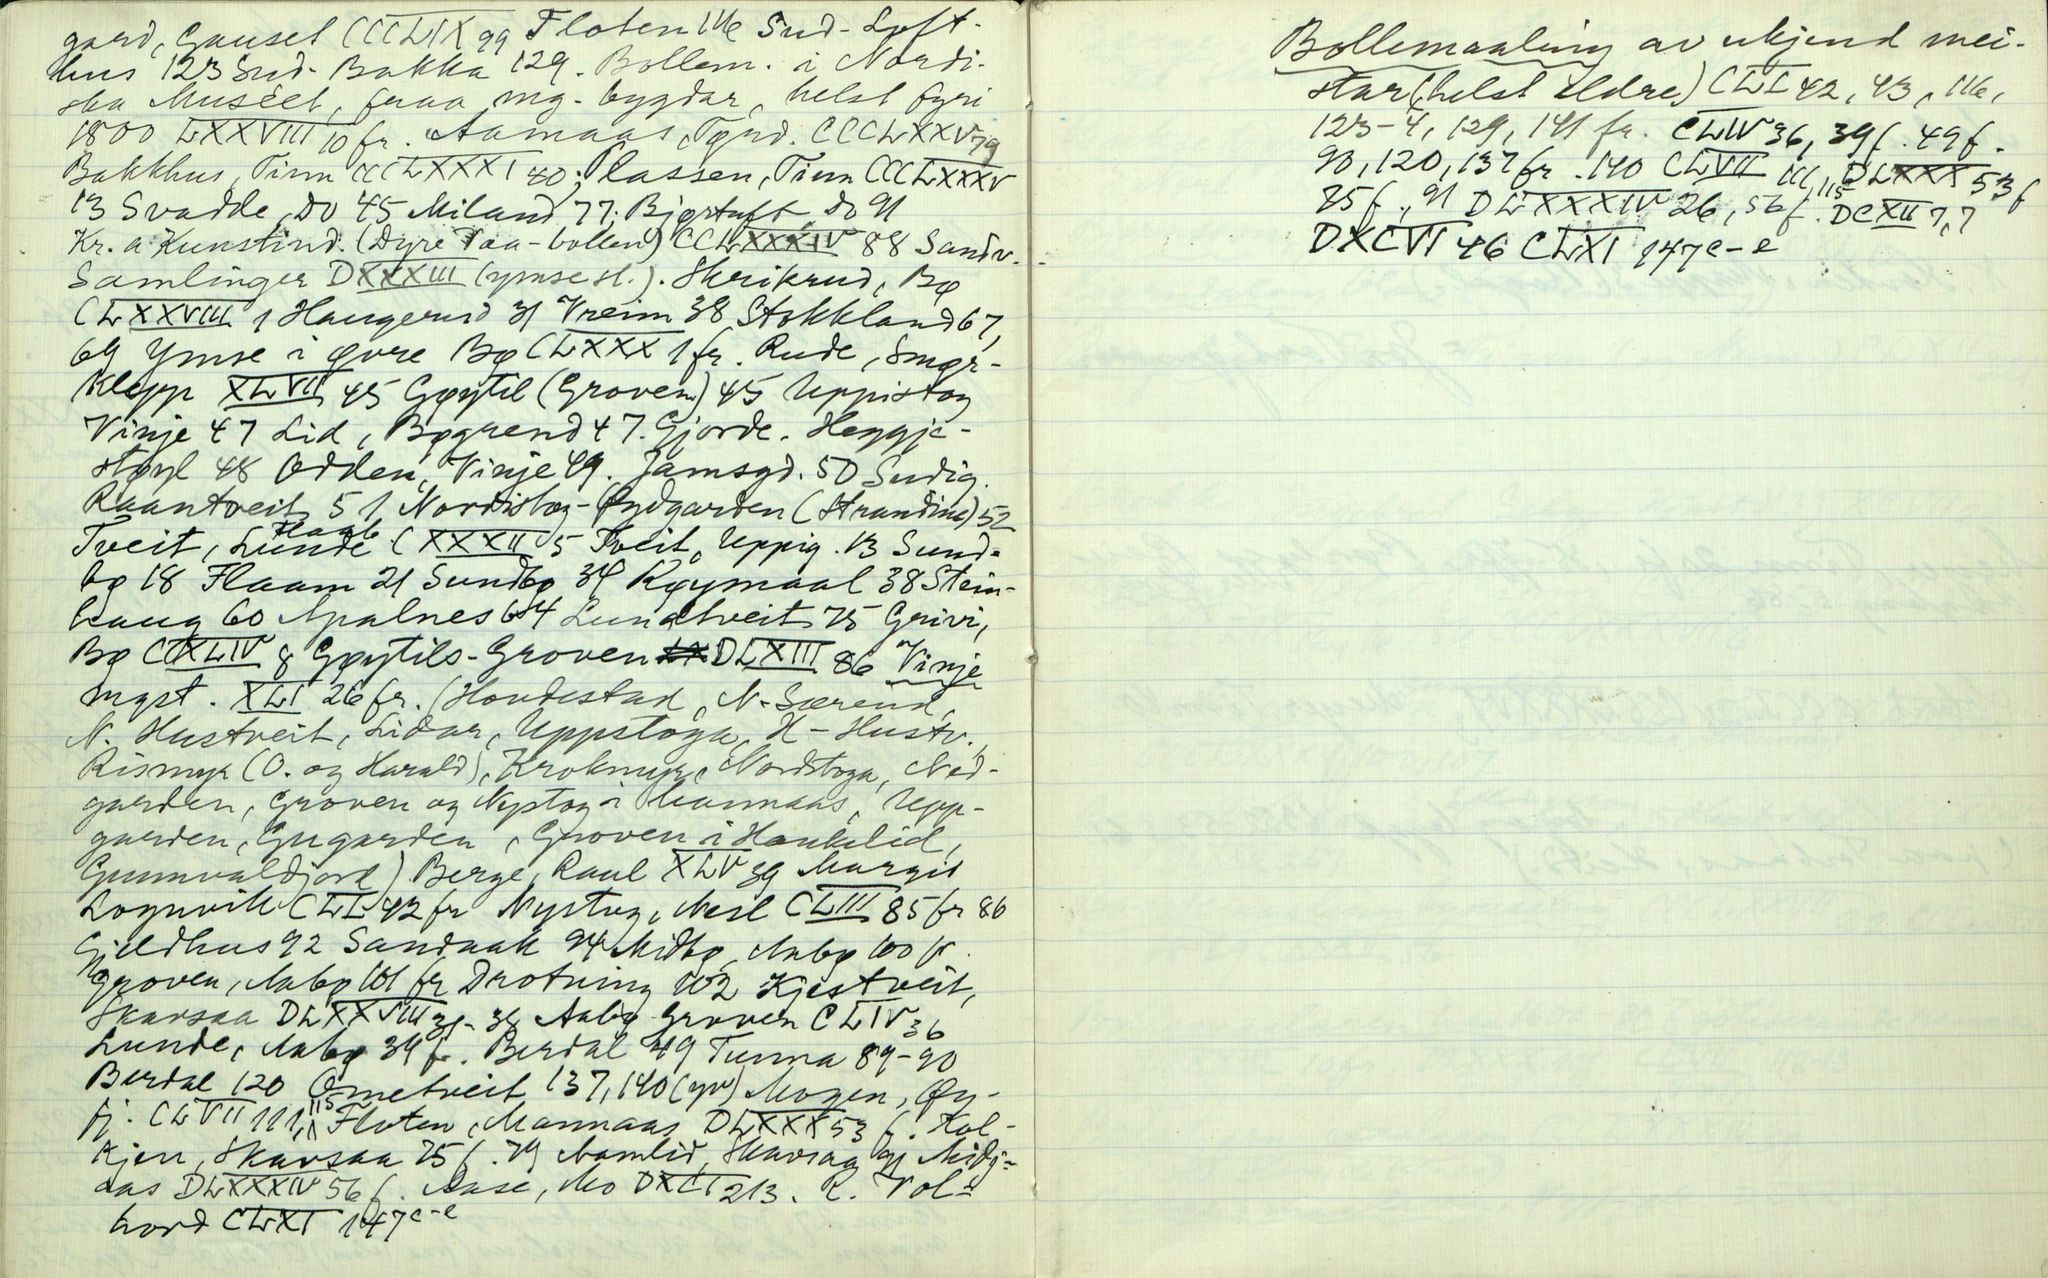 gard, Gausel CCCLIX 99 Floten 116 Sud-Loft-
hus 123 Sud-Bakka 129. Bollem. i Nordi-
ska Muséet, fraa mg. bygdar, helst fyri
1800 LXXVIII 10 fr. Aamaas, Tyrd. CCCLXXV 79
Bakkhus, Tinn CCCLXXXI 40; Plassen, Tinn CCCLXXXV
13 Svadde, Do 45 Miland 77; Bjørtuft, Do 91
Kr. a Kunstind. (Dyre Vaa-bollen) CCLXXXIV 88 Sandv.
Samlinger DXXXIII (ymse st.). Skrikrud, Bø
CLXXVIII 1 Haugerud 31 Vreim 38 Stokkland 67,
69 Ymse i øvre Bø CLXXX 1 fr. Rude, Smør-
klepp XLVII 45 Gøytil (Groven) 45 Uppistog
Vinje 47 Lid, Bøgrend 47. Gjorde. Heggje-
støyl 48 Odden, Vinje 49. Jamsgd. 50 Sudig.
Raantveit 51 Nordistog-Øydgarden (Strandine) 52
Tveit, Lunde Flaab CXXXII 5 Tveit, Uppig. 13 Sund-
bø 18 Flaam 21 Sundbø 34 Røymaal 38 Stein-
haug 60 Apalnes 64 Lundtveit 75 Grivi,
Bø CCXLIV 8 Gøytils-Groven DLXIII 86 Vinje
mgst. XLI 26 fr. (Hovdestad, N-Særend,
N. Hustveit, Lidar, Uppstoga, H-Hustv.,
Rismyr (O. og Harald), Krokmyr, Nordstoga, Ned-
garden, Groven og Nystog i Mannaas, Upp-
garden, Gugarden, Groven i Haukelid,
Gunnvaldjord) Berge, Raul XLV 39 Margit
Lognvik CLI 42 fr Nystog, Nesl CLIII 85 fr 86
Gjeldhus 92 Sandaak 94 Midbø, Aabø 100 V.
Groven, Aabø 101 fr Drotning 102 Kjistveit,
Skarsaa DLXXVIII 31-38 Aabø Groven CLIV 36
Lunde, Aabø 39 f. Berdal 49 Tunna 89-90
Berdal 120 Ormetveit 137, 140 (yv) Mogen, Øy-
fj. CLVII 111, 115 Floten, Mannaas DLXXX 53 f. Kol-
kjen, Skarsaa 75 f. 79 Aamlid, Skarsaa 91 Midj-
aas DLXXXIV 56 f. Aase, Mo DXCI 213. R. Vol-
hovd CLXI 147 c-e
Bollemaaling av ukjend mei-
star (helst eldre) CLI 42, 43, 116,
123-4, 129, 141 fr. CLIV 36, 39 f. 49 f.
90, 120, 137 fr. 140 CLVII 111, 115 DLXXX 53 f
75 f, 91 DLXXXIV 26, 56 f. DCXII 7, 7
DXCVI 46 CLXI 147 c-e